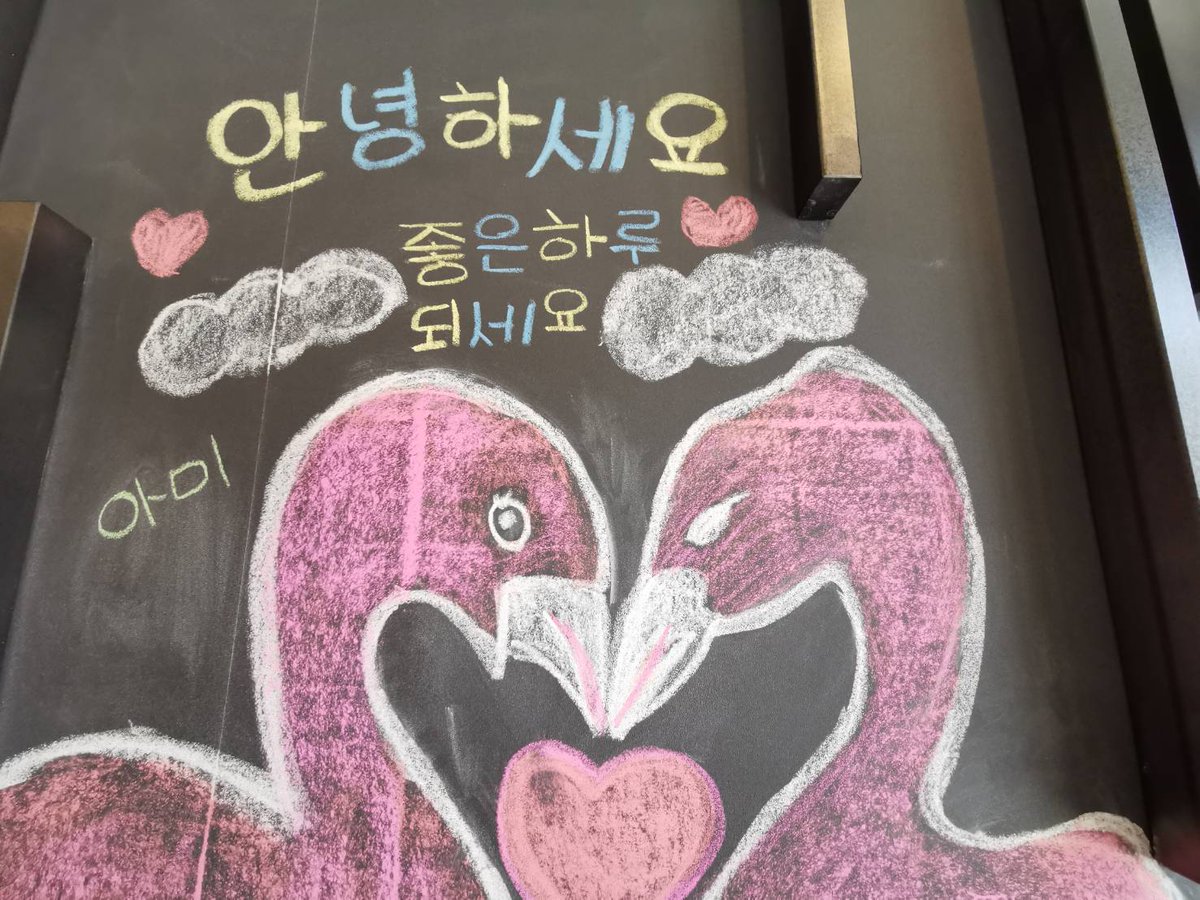 안녕하세요
좋은하루
되세요
아미